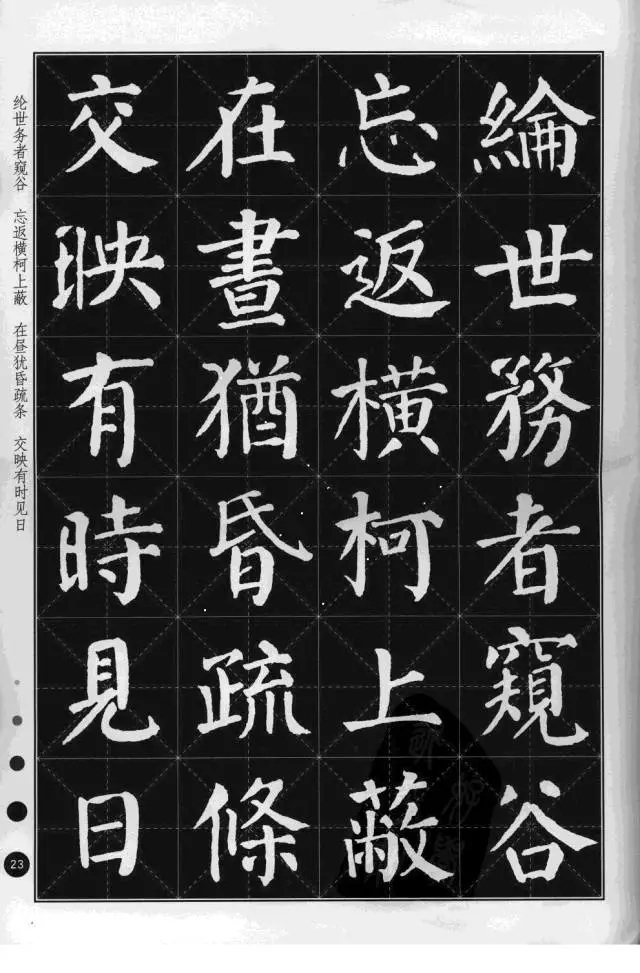 綸世務者窺谷
忘返橫柯上蔽
在晝猶昏疏條
交映有時見日
纶世务者窥谷　忘返横柯上蔽　在昼犹昏疏条　交映有时见日
23